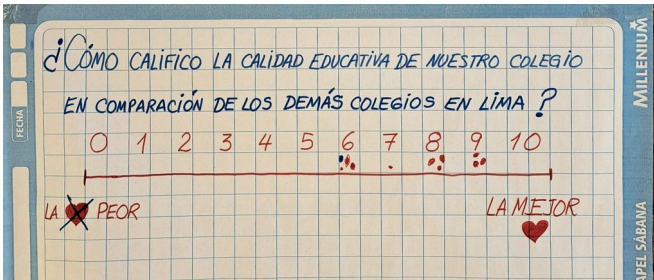 ¿CÓMO CALIFICO LA CALIDAD EDUCATIVA DE NUESTRO COLEGIO
EN COMPARACIÓN DE LOS DEMÁS COLEGIOS EN LIMA?
0 1 2 3 4 5 6 7 8 9 10
LA PEOR
LA MEJOR
FECHA
MILLENIUM
PAPEL SÁBANA